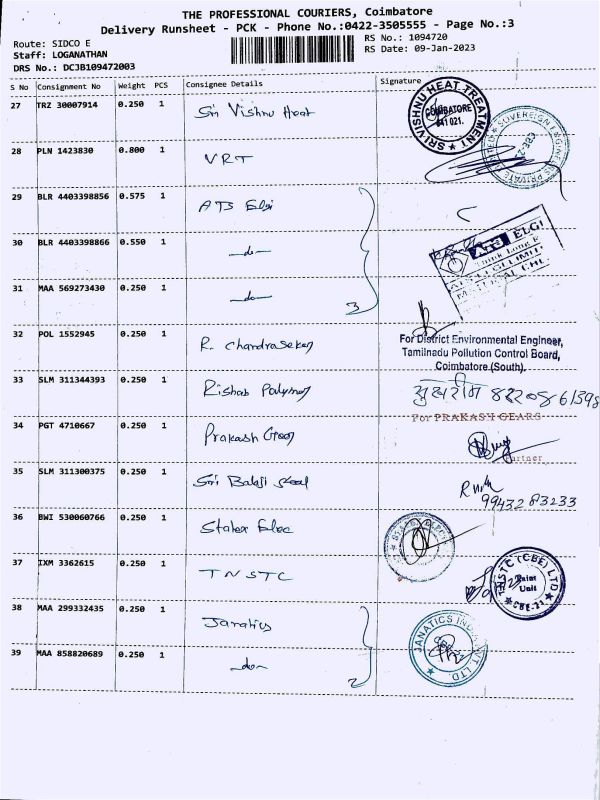 THE PROFESSIONAL COURIERS, Coimbatore
Delivery Runsheet - PCK - Phone No.:0422-3505555 - Page No.:3
Route: SIDCO E
RS No.: 1094720
Staff: LOGANATHAN
RS Date: 09-Jan-2023
DRS No.: DC3B109472003
S No Consignment No Weight PCS Consignee Details Signature
27 TRZ 30007914 0.250 1 Sri Vishnu Heat
SRI VISHNU HEAT TREATMENT
COIMBATORE
641 021.
SOVEREIGN ENGINEERS PRIVATE
28 PLN 1423830 0.800 1 VRT
29 BLR 4403398856 0.575 1 ATS Elgi
30 BLR 4403398866 0.550 1 —do—
ATS ELGI
31 MAA 569273430 0.250 1 —do—
3
32 POL 1552945 0.250 1 R. Chandrasekar
For District Environmental Engineer,
Tamilnadu Pollution Control Board,
Coimbatore (South).
33 SLM 311344393 0.250 1 Rishab Polymer
34 PGT 4710667 0.250 1 Prakash Gear
For PRAKASH GEARS
Partner
35 SLM 311300375 0.250 1 Sri Balaji Steel
9943283233
36 BWI 530060766 0.250 1 Stalex Elec
37 IXM 3362615 0.250 1 TNSTC
TNSTC (CBE) LTD
Unit
CBE-21
38 MAA 299332435 0.250 1 Janatics
JANATICS INDIA PVT. LTD.
39 MAA 858820689 0.250 1 —do—
2